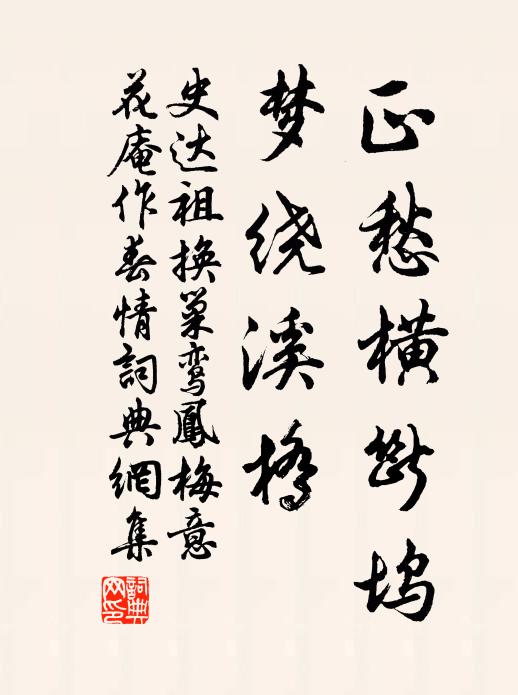 正愁横断坞
梦绕溪桥
史达祖换巢鸾鳳梅意
花庵作春情詞典網集
詞典網印